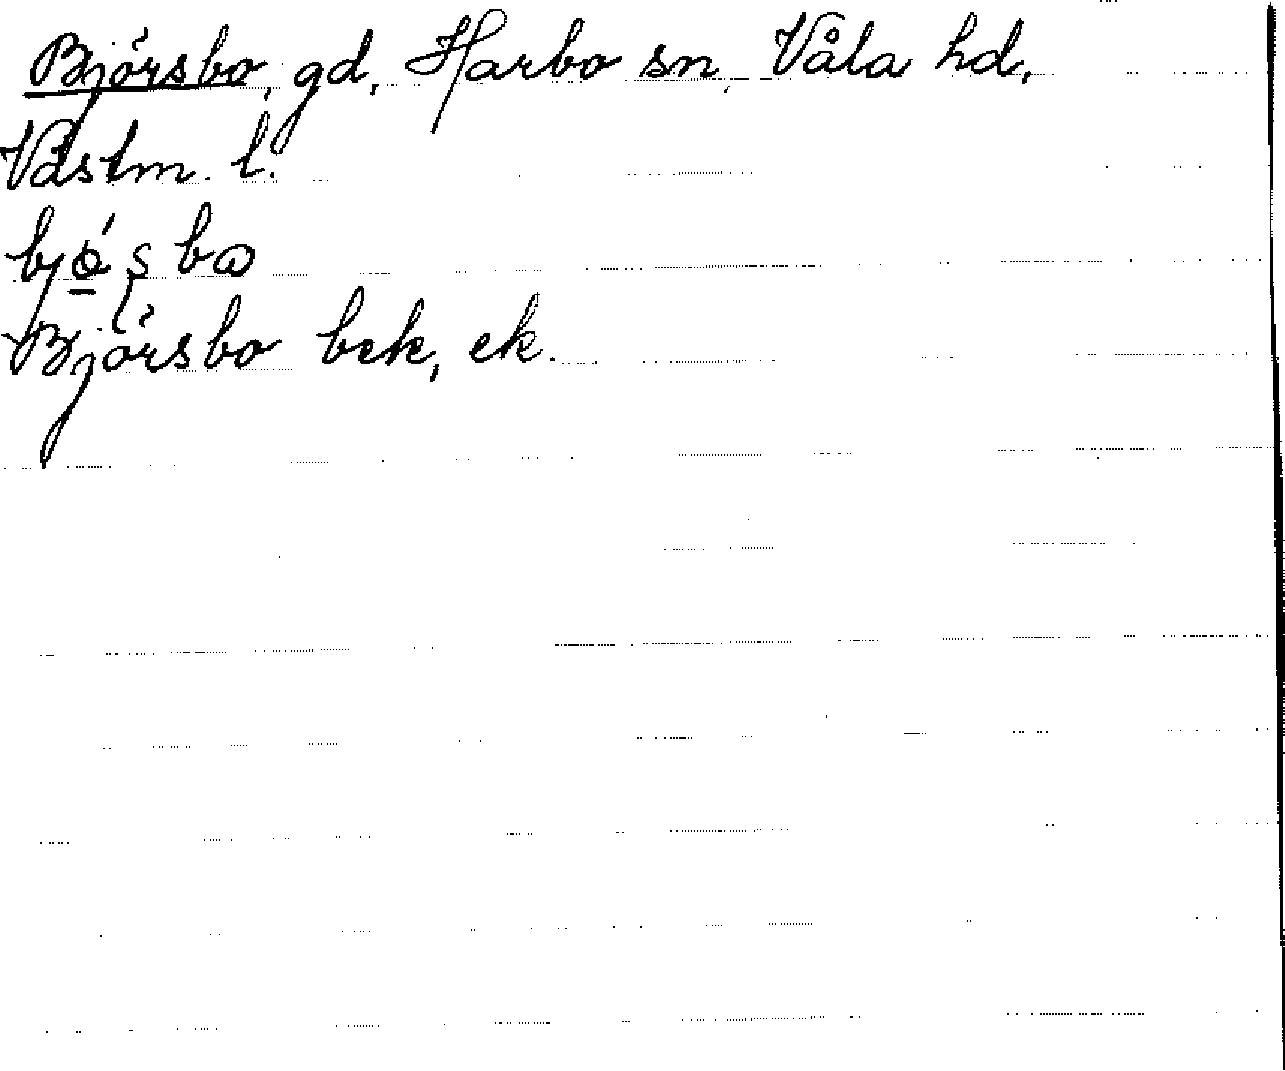 Björsbo, gd, Harbo sn, Våla hd,
Västm. l.
bjö́ʂbω
Björsbo bek, ek.